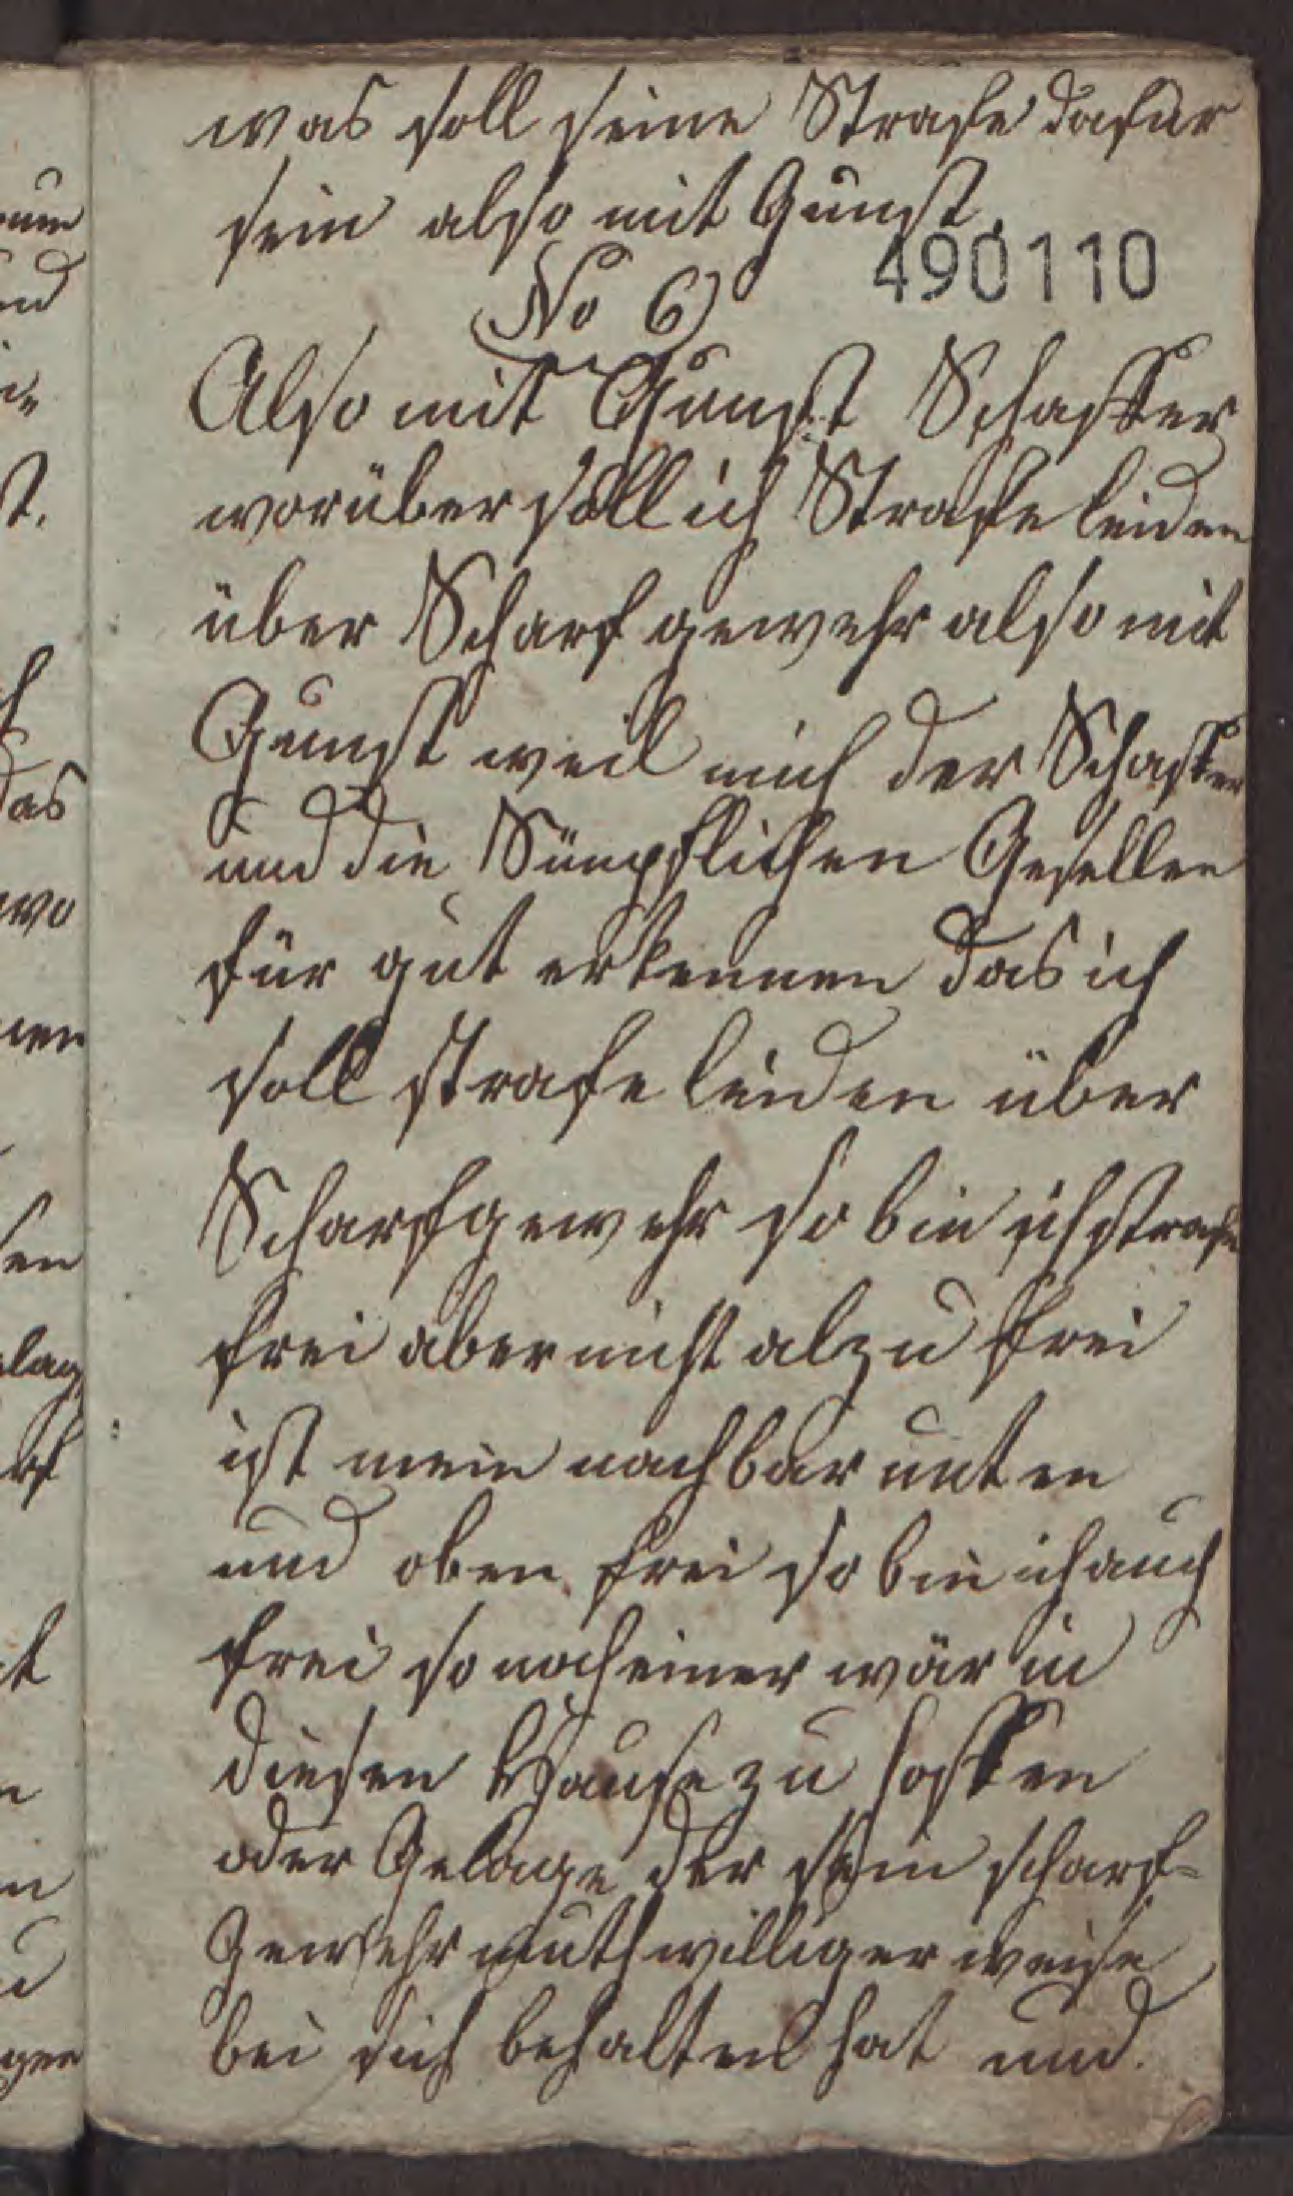 was soll seine Strafe dafür
sein also mit Gunst.
490110
No 6
Also mit Gunst Schaffer
worüber soll ich Strafe leiden
über Scharf gewehr also mit
Gunst weil mich der Schaffer
und die Sämptlichen Gesellen
für gut erkennen das ich
soll strafe leiden über
Scharfgewehr so bin ich strafe
frei aber nicht alzu frei
ist mein nachbar unten
und oben frei so bin ich auch
frei so noch einer wär in
diesen Hause zu
oder Gelage der sein scharf=
Gewehr muthwilliger weise
bei sich behalten hat und